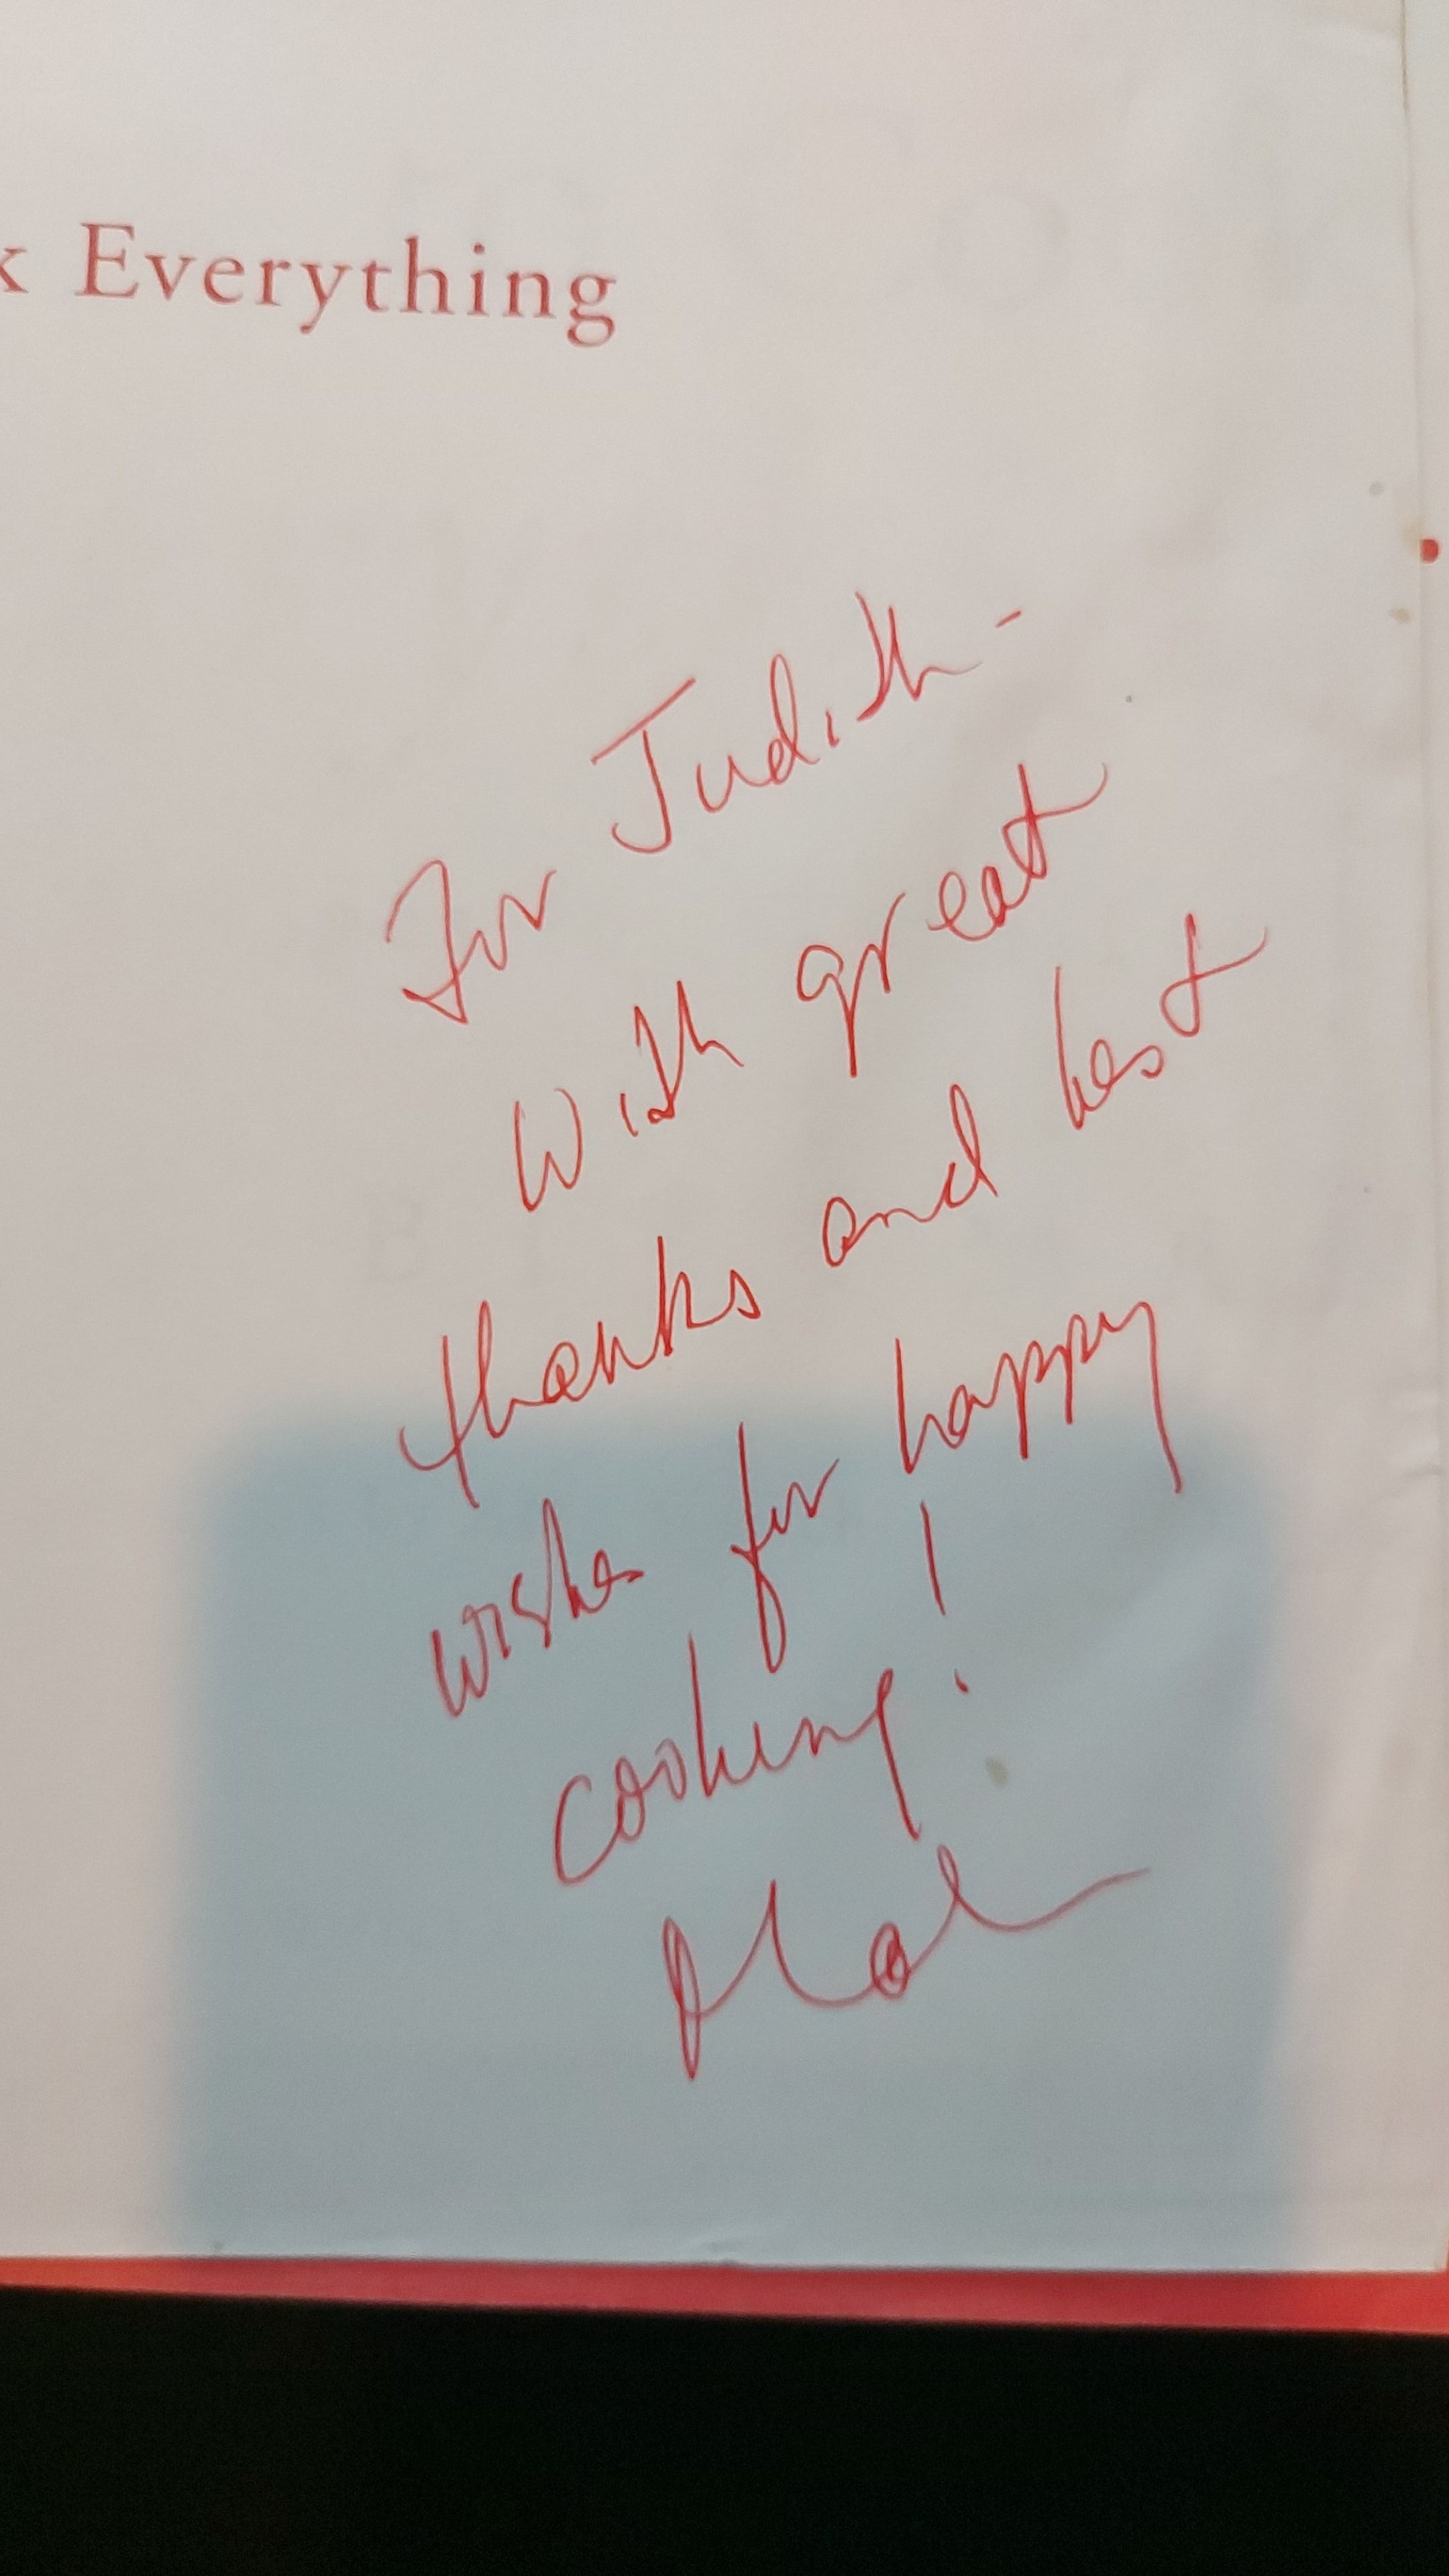 k Everything
For Judith -
With great
thanks and best
wishes for happy
cooking!